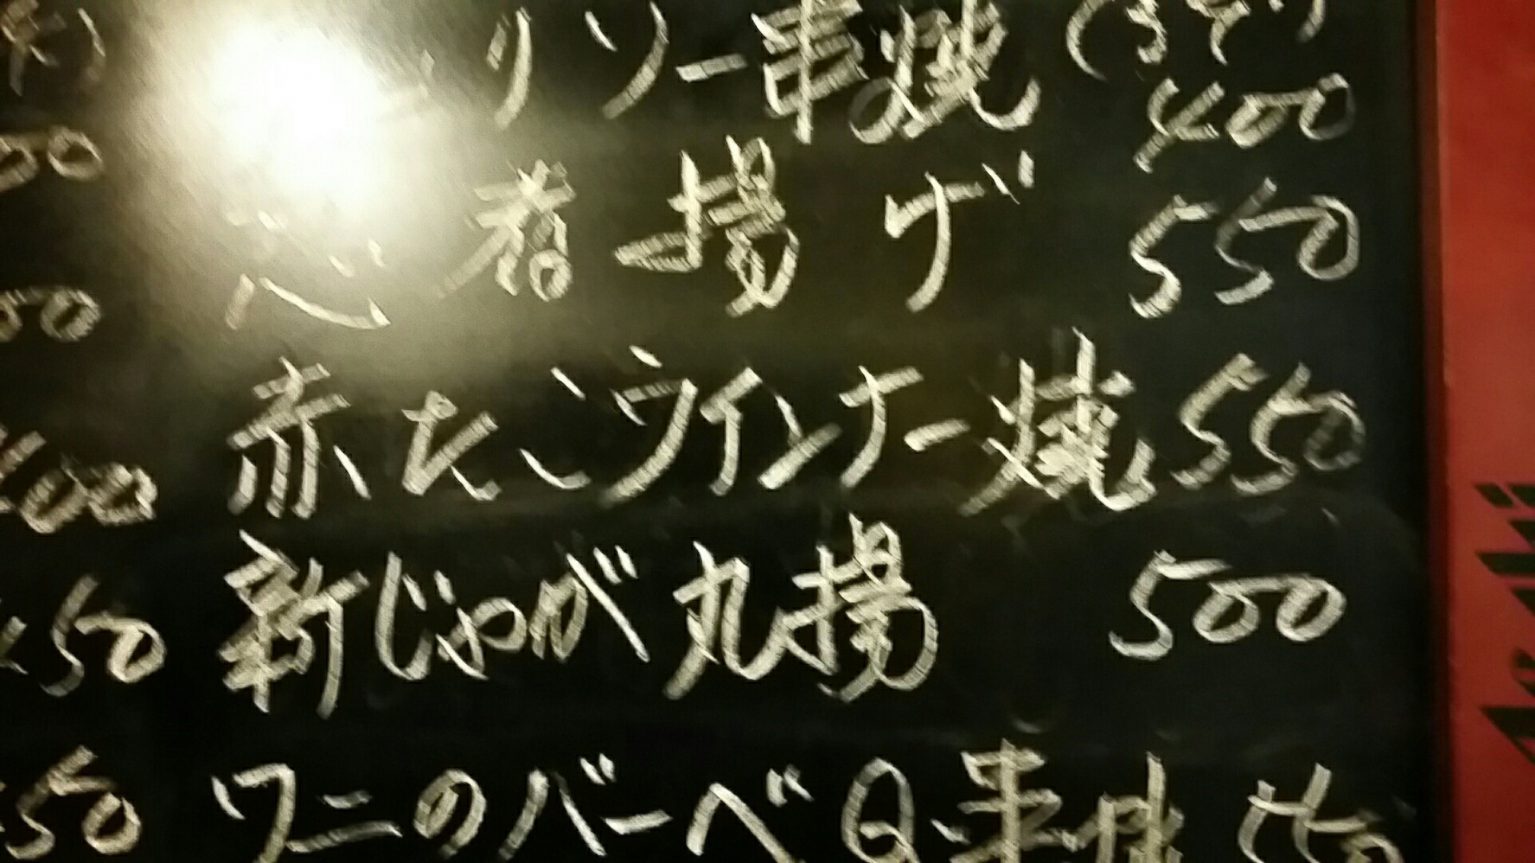 リソー串焼 (3本)
400
忍者揚げ 550
赤たこウインナー焼 550
新じゃが丸揚 500
ワニのバーベQ串焼
00
50
400
450
50
Asahi